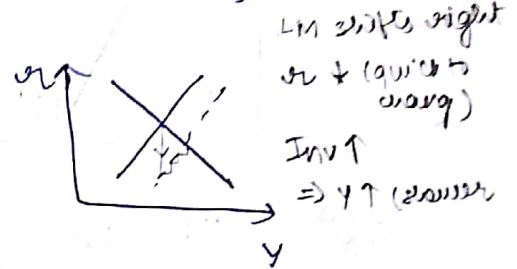 LM shifts right
r ↓ (quick &
sharp)
r
Inv ↑
=> Y ↑ (slower
Y